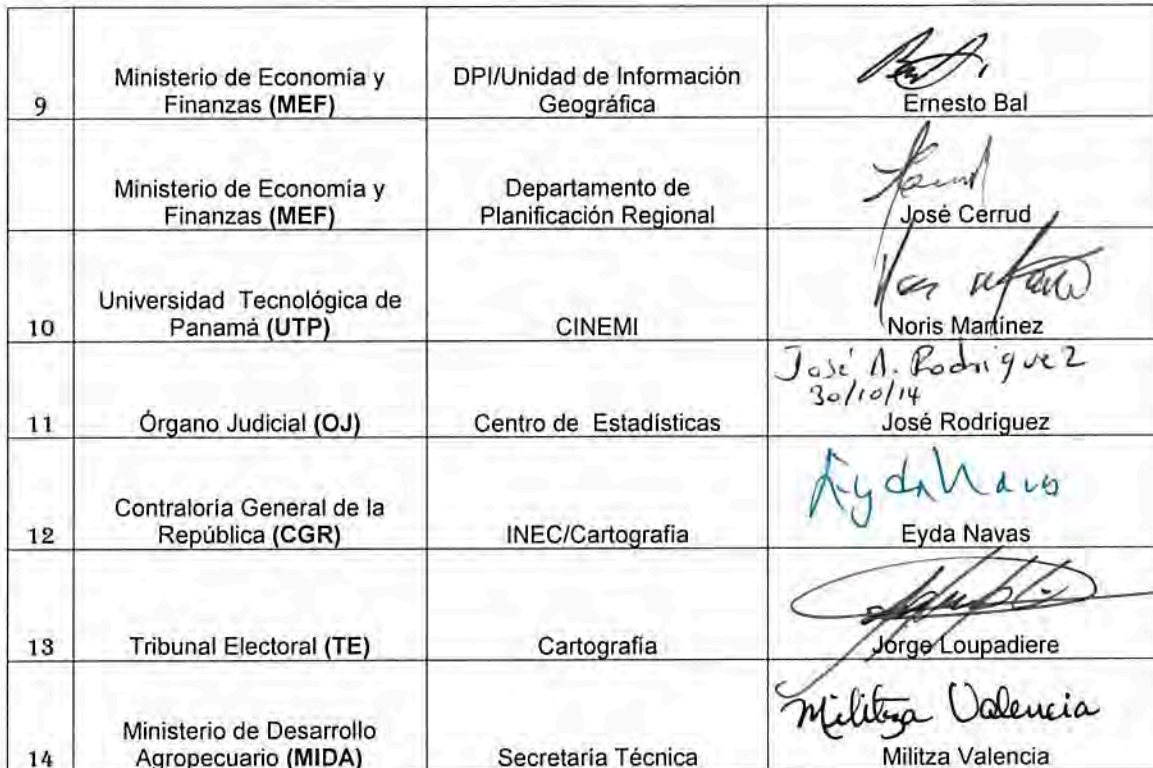 9
Ministerio de Economía y
Finanzas (MEF)
DPI/Unidad de Información
Geográfica
Ernesto Bal
Ministerio de Economía y
Finanzas (MEF)
Departamento de
Planificación Regional
José Cerrud
10
Universidad Tecnológica de
Panamá (UTP)
CINEMI
Noris Martínez
11
Órgano Judicial (OJ)
Centro de Estadísticas
José A. Rodriguez
30/10/14
José Rodríguez
12
Contraloría General de la
República (CGR)
INEC/Cartografía
Eyda Navas
Eyda Navas
13
Tribunal Electoral (TE)
Cartografía
Jorge Loupadiere
14
Ministerio de Desarrollo
Agropecuario (MIDA)
Secretaria Técnica
Militza Valencia
Militza Valencia